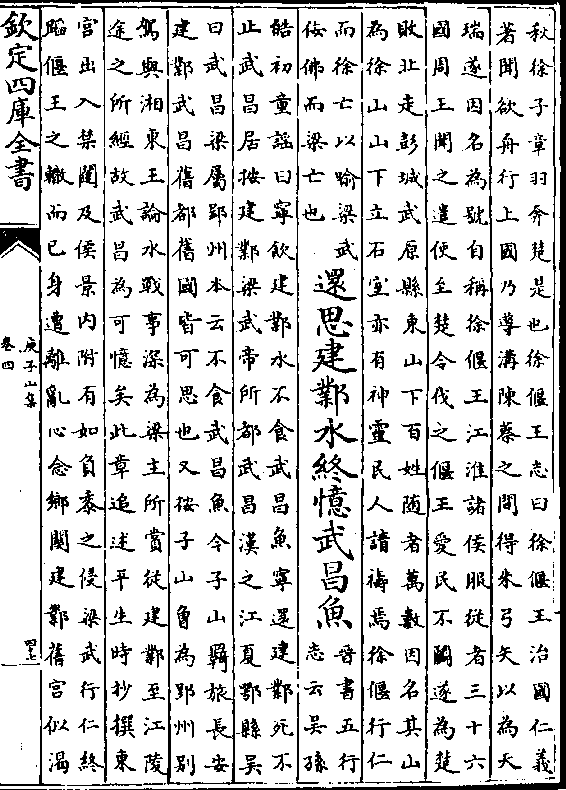 秋徐子章羽奔楚是也徐偃王志曰徐偃王治國仁義
著聞欲舟行上國乃導溝陳蔡之間得朱弓矢以為天
瑞遂因名為號自稱徐偃王江淮諸侯服從者三十六
國周王聞之遣使至楚令伐之偃王愛民不鬭遂為楚
敗北走彭城武原縣東山下百姓随者萬數因名其山
為徐山山下立石室亦有神靈民人請禱焉徐偃行仁
而徐亡以喻梁武
佞佛而梁亡也
還思建鄴水終憶武昌魚
晉書五行
志云吳孫
皓初童謡曰寧飲建鄴水不食武昌魚寧還建鄴死不
止武昌居按建鄴梁武帝所都武昌漢之江夏鄂縣吳
曰武昌梁屬郢州本云不食武昌魚今子山羇旅長安
建鄴武昌舊都舊國皆可思也又按子山曾為郢州别
駕與湘東王論水戰事深為梁主所賞從建鄴至江陵
途之所經故武昌為可憶矣此章追述平生時抄撰東
宫出入禁闥及侯景内附有如負黍之侵梁武行仁終
蹈偃王之轍而已身遭離亂心念鄉關建鄴舊宫似溫
欽定四庫全書
庾子山集
卷四